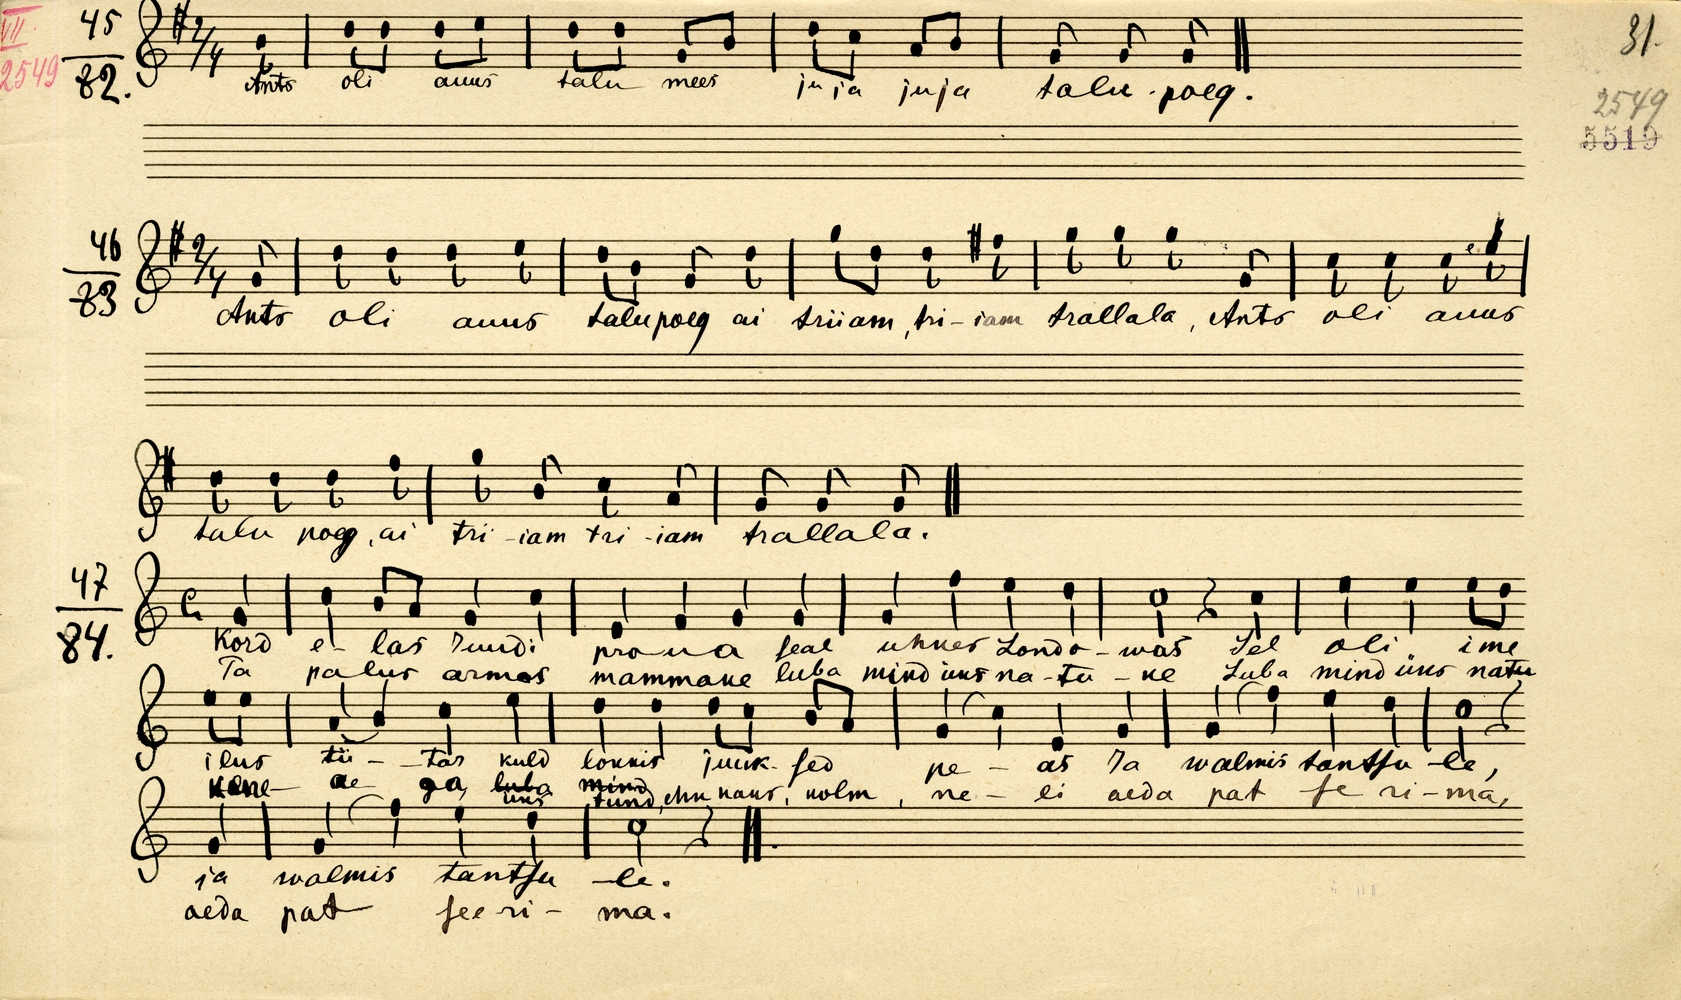 VII 2549
31.
2549
5519
45
82.
2/4
Ants oli auus talu mees ju ja ju ja talu-poeg.
46
83
2/4
Ants oli auus talupoeg ai triiam, tri-iam trallala, Ants oli auus
talu poeg, ai tri-iam tri-iam trallala.
47
84.
Kord e-las Juudi proua seal uhkes Londo-was Sel oli ime
Ta palus armas mammake luba mind üks na-tu-ke Luba mind üks natu
ilus tü-tar kuld lokkis juuk-sed pe-as Ja walmis tantsu-le,
kene ae-ga, luba mind
üks tund, ehk kaks, kolm, ne-li aeda pat se ri-ma,
ja walmis tantsu-le.
aeda pat see ri-ma.